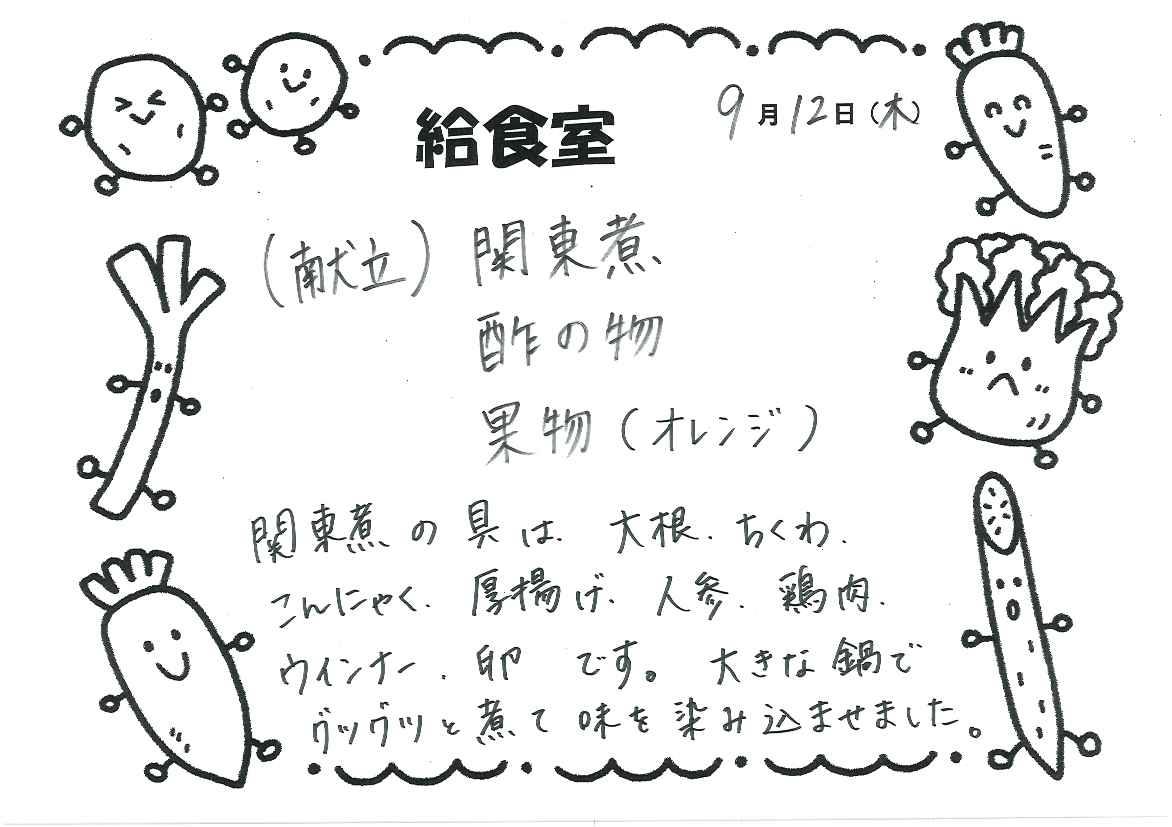 給食室
9月12日(木)
(献立) 関東煮
酢の物
果物(オレンジ)
関東煮の具は、大根、ちくわ、
こんにゃく、厚揚げ、人参、鶏肉、
ウインナー、卵 です。大きな鍋で
グツグツと煮て味を染み込ませました。